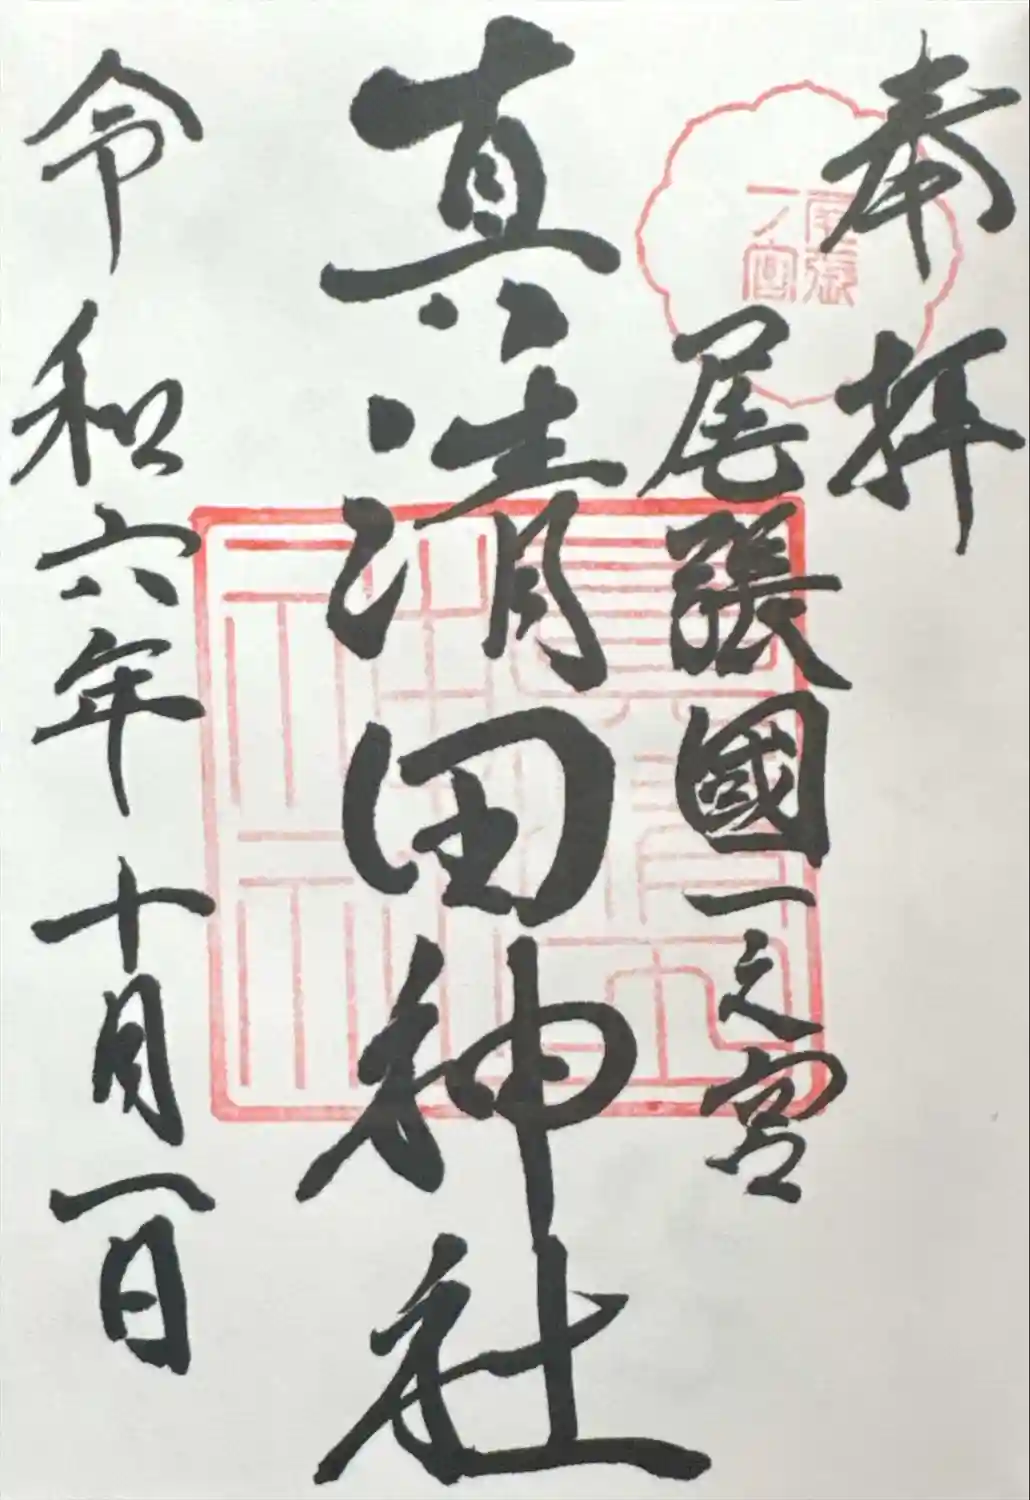 奉拝
尾張一ノ宮
尾張國一之宮
真清田神社
令和六年十月一日